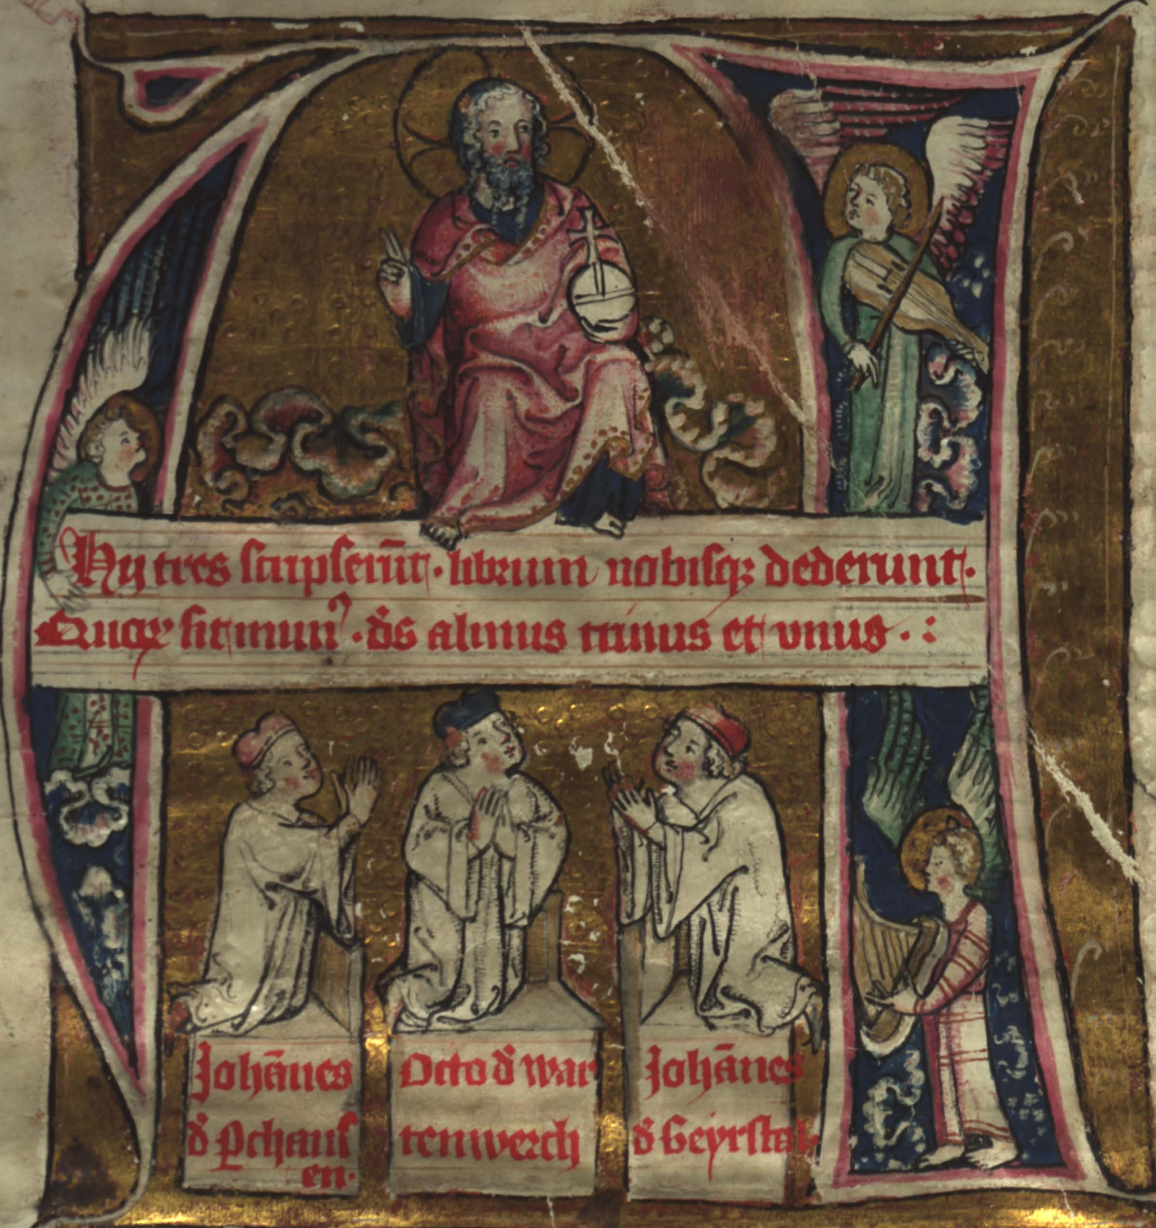 Hy tres scripseru̅t · librum nobisqꝫ dederunt ·
sit · d̅s almus trinus et vnus · :
Joha̅nes
d̕ Pchaus
en ·
Otto d̕ war
tenwerch
Joha̅nes
d̕ Geyrstal